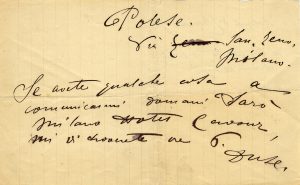 Polese.
Via San Zeno,
Milano.
Se avete qualche cosa a
comunicarmi domani sarò
Milano Hotel Cavour,
mi vi ore 6.
Duse.